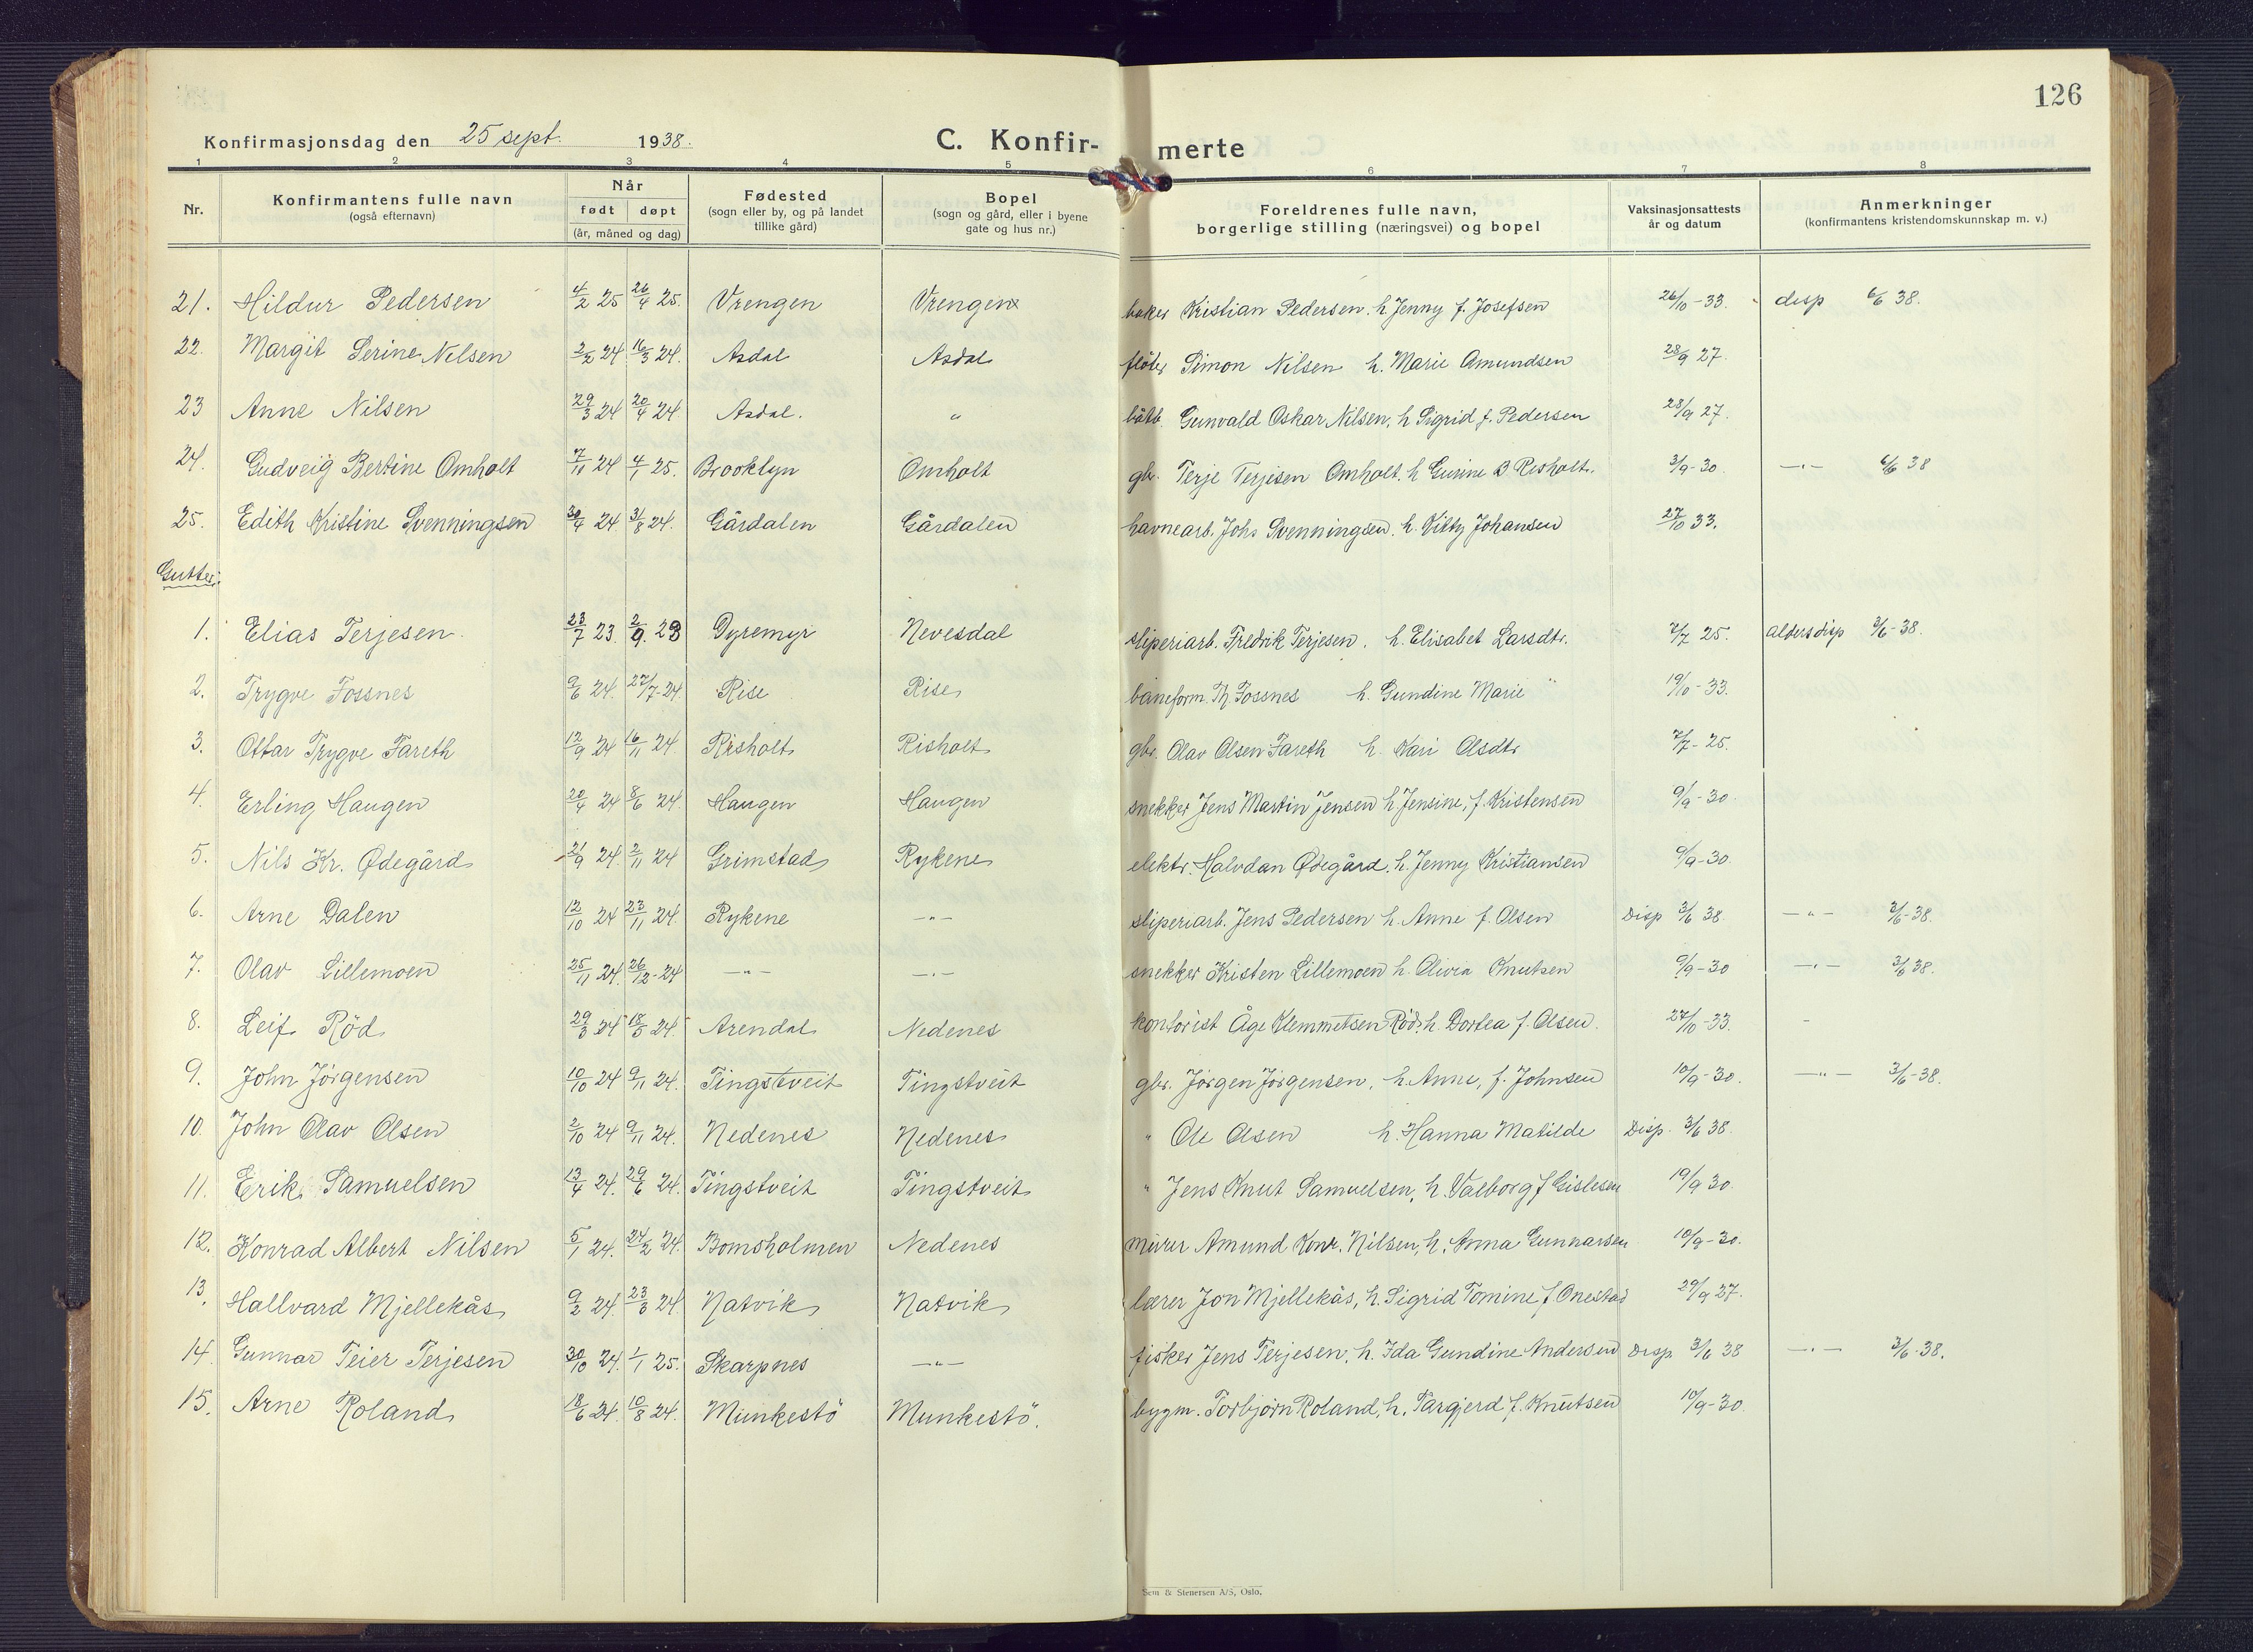 126
Konfirmasjonsdag den 25 sept. 1938.
C. Konfir- merte
1 2 3 4 5 6 7 8
Nr. Konfirmantens fulle navn (også efternavn) Når født døpt (år, måned og dag) Fødested (sogn eller by, og på landet tillike gård) Bopel (sogn og gård, eller i byene gate og hus nr.) Foreldrenes fulle navn, borgerlige stilling (næringsvei) og bopel Vaksinasjonsattests år og datum Anmerkninger (konfirmantens kristendomskunnskap m. v.)
21. Hildur Pedersen 4/2 25 26/4 25. Vrengen Vrengen baker Kristian Pedersen. h. Jenny f. Josefsen 26/10-33. disp 6/6 38.
22. Margit Serine Nilsen 2/2 24 16/3 24. Asdal Asdal fløter Simon Nilsen h. Marie Amundsen 28/9 27.
23 Anne Nilsen 29/3 24 20/4 24. Asdal. " båtb. Gunvald Oskar Nilsen, h Sigrid f. Pedersen 28/9 27.
24. Gudveig Bertine Omholt 7/11 24 4/1 25. Brooklyn Omholt gbr. Terje Terjesen Omholt. h Gurine B Risholt. 3/9-30. —"— 6/6 38
25. Edith Kristine Svenningsen 30/4 24 31/8 24. Gårdalen Gårdalen havnearb. Johs Svenningsen. h. Kitty Johansen 27/10 33.
Gutter:
1. Elias Terjesen. 23/7 23. 2/9. 23 Dyremyr Nevesdal sliperiarb. Fredrik Terjesen. h. Elisabet Larsdtr. 7/7 25. aldersdisp 3/6-38.
2. Trygve Fossnes 9/6 24. 27/7-24 Rise Rise baneform. Th. Fossnes h. Gundine Marie " 19/10-33.
3. Ottar Trygve Fareth 12/9 24 16/11 24. Risholt Risholt gbr. Olav Olsen Fareth h. Kari Olsdtr 7/7-25.
4. Erling Haugen 20/4 24 8/6 24. Haugen Haugen snekker Jens Martin Jensen h. Jensine, f. Kristensen 9/9-30.
5. Nils Kr. Ødegård 21/9 24. 2/11 24 Grimstad Rykene elektr. Halvdan Ødegård. h. Jenny Kristiansen 9/9-30.
6. Arne Dalen 12/10 24 23/11 24. Rykene —"— sliperiarb. Jens Pedersen h. Anne f. Olsen Disp 3/6 38. —"— 3/6-38.
7. Olav Lillemoen 25/11 24. 26/12-24 —"— —"— snekker Kristen Lillemoen h. Olivia Knutsen 9/9-30 —"— 3/6 38.
8. Leif Röd 29/3 24 18/5 24. Arendal Nedenes kontorist Åge Klemmetsen Röd. h. Dortea f. Olsen. 27/10-33.
9. John Jörgensen 10/10 24 9/11 24. Tingstveit Tingstveit gbr. Jörgen Jörgensen, h. Anne, f. Johnsen 10/9-30. —"— 3/6-38.
10. John Olav Olsen 2/10 24 9/11 24. Nedenes Nedenes " Ole Olsen h. Hanna Matilde Disp. 3/6 38.
11. Erik Samuelsen 13/4 24. 29/6 24. Tingstveit Tingstveit " Jens Knut Samuelsen, h. Valborg f Gislesen 19/9 30.
12. Konrad Albert Nilsen 5/1 24. 24/2 24. Bomsholmen Nedenes murer Amund Konr. Nilsen, h. Anna Gunnarsen 10/9-30.
13. Hallvard Mjellekås 9/2 24. 23/3 24. Natvik Natvik lærer Jon Mjellekås, h. Sigrid Tomine f Onestad 29/9 27.
14. Gunnar Teier Terjesen 30/10 24. 1/1 25. Skarpnes —"— fisker Jens Terjesen. h. Ida Gundine Andersen Disp. 3/6 38 —"— 3/6-38.
15. Arne Roland 18/6 24. 10/8 24. Munkestö Munkestö. bygm. Torbjörn Roland, h. Targjerd f. Knutsen 10/9-30
Sem & Stenersen A/S, Oslo.